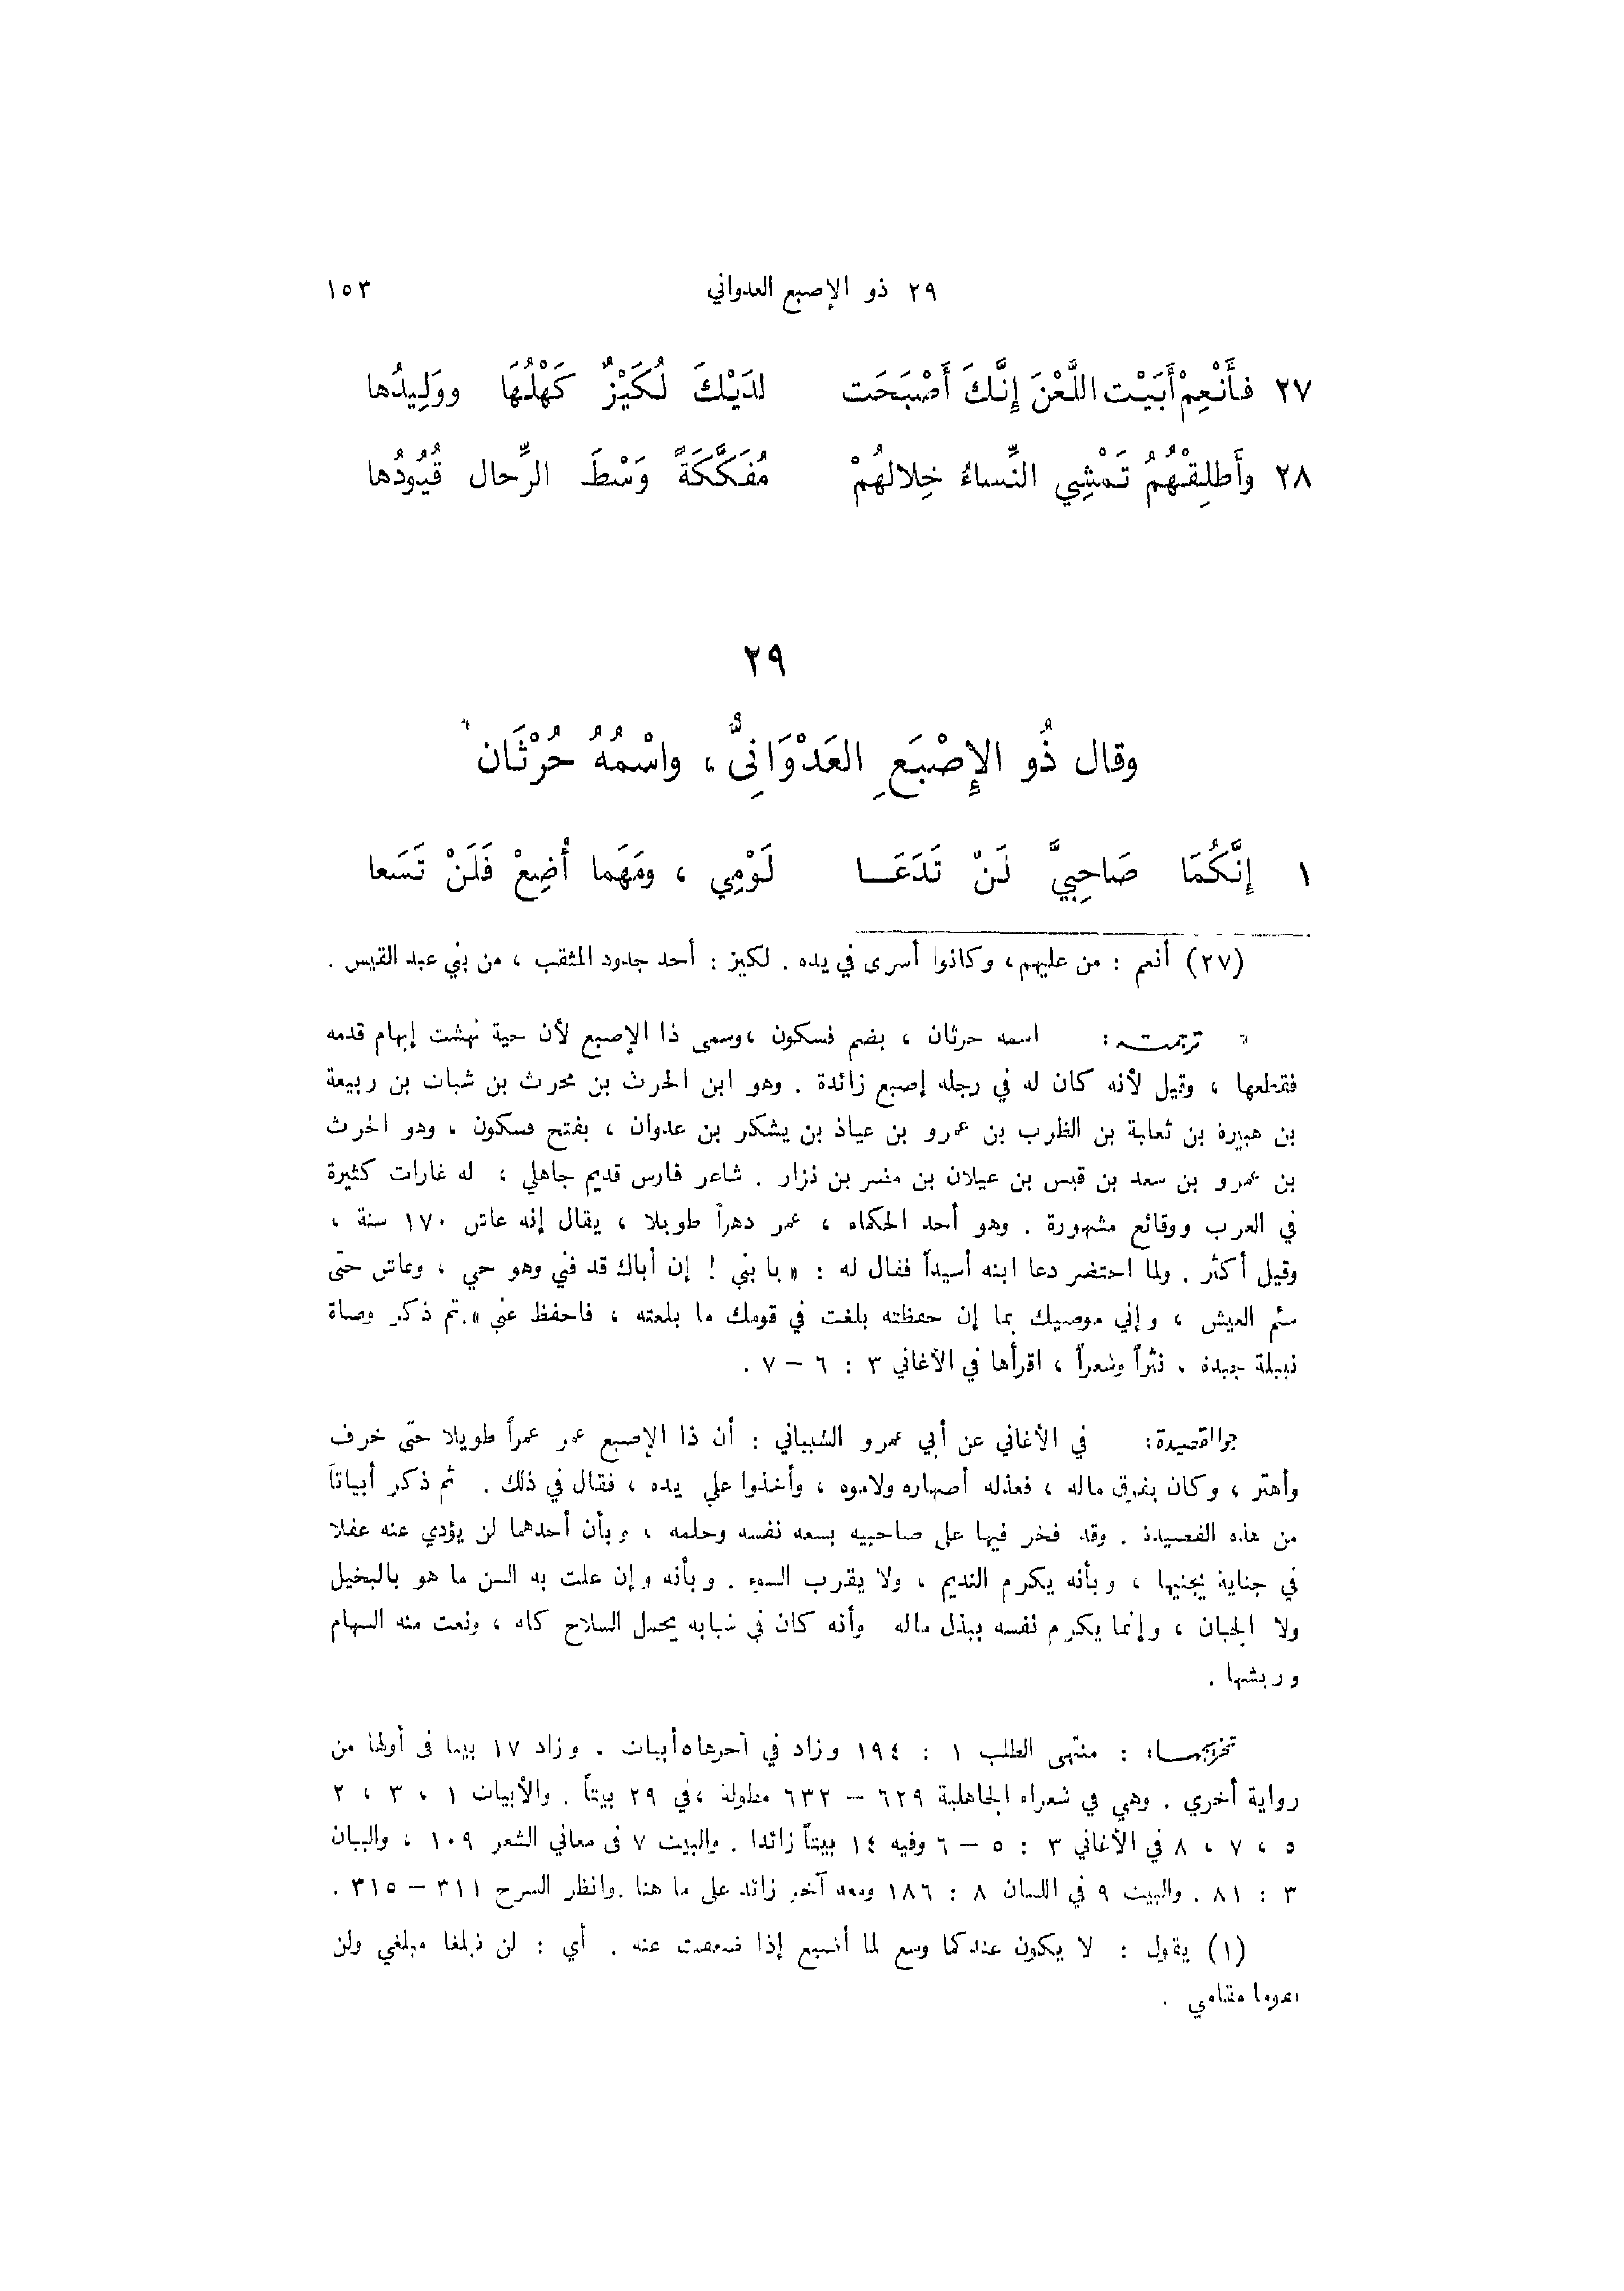 ٢٩ ذو الإصبع العدواني ١٥٣
٢٧ فأَنْعِمْ أَبَيْتَ اللَّعْنَ إِنَّكَ أَصْبَحَت لدَيْكَ لُكَيْزٌ كَهْلُهَا ووَلِيدُها
٢٨ وأَطلِقْهُمُ تَمْشِي النِّساءُ خِلالهُمْ مُفَكَّكَةً وَسْطَ الرِّحال قُيُودُها
٢٩
وقال ذُو الإِصْبَعِ العَدْوَانِىُّ ، واسْمُهُ حُرْثَان *
١ إِنَّكُمَا صَاحِبِيَّ لَنْ تَدَعَـا لَوْمِي ، ومَهَما أُضِعْ فَلَنْ تَسَعا
(٢٧) أنعم : من عليهم ، وكانوا أسرى في يده . لكيز : أحد جدود المثقب ، من بني عبد القيس .
* ترجمته : اسمه حرثان ، بضم فسكون ، وسمى ذا الإصبع لأن حية نهشت إبهام قدمه
فقطعها ، وقيل لأنه كان له في رجله إصبع زائدة . وهو ابن الحرث بن محرث بن شباث بن ربيعة
بن هبيرة بن ثعلبة بن الظرب بن عمرو بن عياذ بن يشكر بن عدوان ، بفتح فسكون ، وهو الحرث
بن عمرو بن سعد بن قيس بن عيلان بن مضر بن نزار . شاعر فارس قديم جاهلي ، له غارات كثيرة
في العرب ووقائع مشهورة . وهو أحد الحكماء ، عمر دهراً طويلا ، يقال إنه عاش ١٧٠ سنة ،
وقيل أكثر . ولما احتضر دعا ابنه أسيداً فقال له : « يا بني ! إن أباك قد فني وهو حي ، وعاش حتى
سئم العيش ، وإني موصيك بما إن حفظته بلغت في قومك ما بلغته ، فاحفظ عني » . ثم ذكر وصاة
نبيلة جيدة ، نثراً وشعراً ، اقرأها في الأغاني ٣ : ٦ – ٧ .
جو القصيدة : في الأغاني عن أبي عمرو الشيباني : أن ذا الإصبع عمر عمراً طويلا حتى خرف
وأهتر ، وكان يفرق ماله ، فعذله أصهاره ولاموه ، وأخذوا على يده ، فقال في ذلك . ثم ذكر أبياتاً
من هذه القصيدة . وقد فخر فيها على صاحبيه بسعة نفسه وحلمه ، وبأن أحدهما لن يؤدي عنه عقلا
في جناية يجنيها ، وبأنه يكرم النديم ، ولا يقرب السوء . وبأنه وإن علت به السن ما هو بالبخيل
ولا الجبان ، وإنما يكرم نفسه ببذل ماله وأنه كان في شبابه يحمل السلاح كله ، ونعت منه السهام
وريشها .
تخريجها : منتهى الطلب ١ : ١٩٤ وزاد في آخرها ٥ أبيات . وزاد ١٧ بيتا فى أولها من
رواية أخري . وهي في شعراء الجاهلية ٦٢٩ – ٦٣٢ مطولة ، في ٢٩ بيتاً . والأبيات ١ ، ٣ ، ٢
٥ ، ٧ ، ٨ في الأغاني ٣ : ٥ – ٦ وفيه ١٤ بيتاً زائدا . والبيت ٧ فى معاني الشعر ١٠٩ ، والبيان
٣ : ٨١ . والبيت ٩ في اللسان ٨ : ١٨٦ ومعه آخر زائد على ما هنا . وانظر الشرح ٣١١ – ٣١٥ .
(١) يقول : لا يكون عندكما وسع لما أضيع إذا ضعفت عنه . أي : لن تبلغا مبلغي ولن
تقوما مقامي .